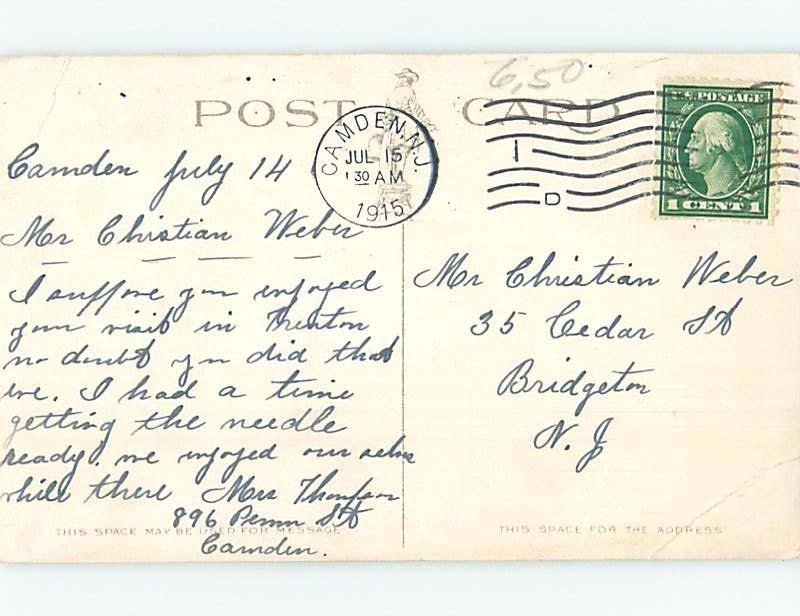 6,50
POST CARD
CAMDEN, N.J.
JUL 15
30 AM
1915
1
D
U.S. POSTAGE
1 CENT 1
Camden July 14
Mr Christian Weber
I suppose you enjoyed
your visit in Trenton
no doubt you did that
eve. I had a time
getting the needle
ready. we enjoyed our selves
while there Mrs Thompson
896 Penn St
Camden.
THIS SPACE MAY BE USED FOR MESSAGE
Mr Christian Weber
35 Cedar St
Bridgeton
N. J
THIS SPACE FOR THE ADDRESS